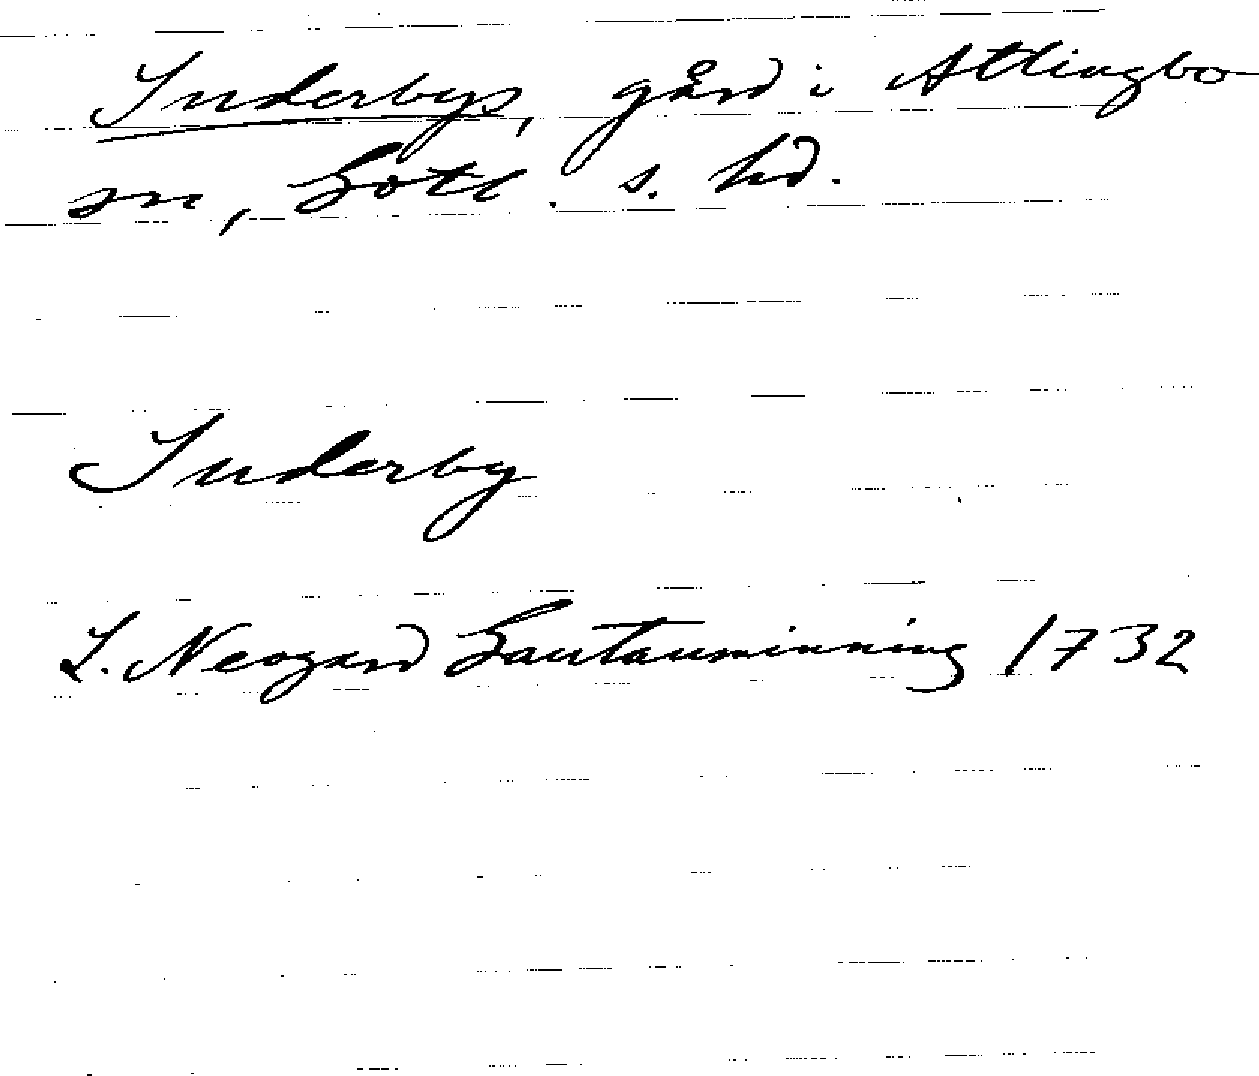 Inderbys, gård i Atlingbo
sn, Gotl. s. hd.
Inderby
L. Neogard Gautauminning 1732